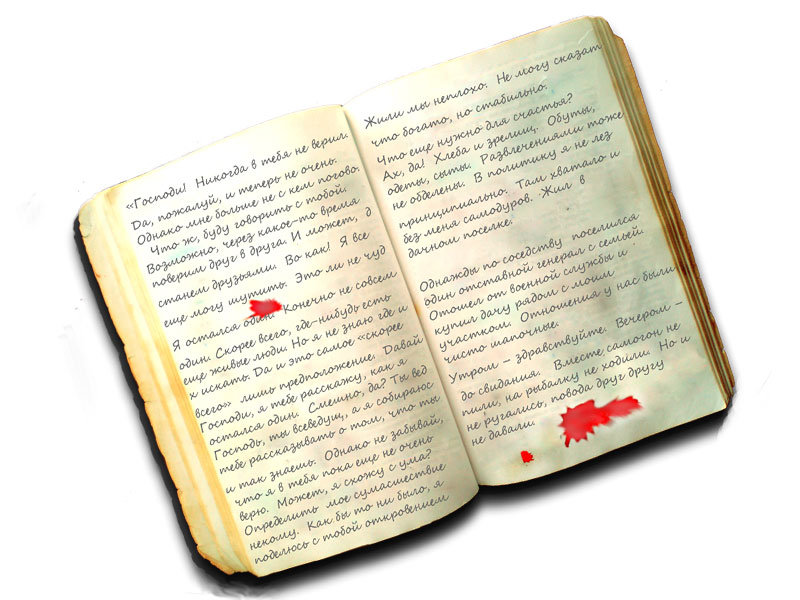 «Господи! Никогда в тебя не верил.
Да, пожалуй, и теперь не очень.
Однако мне больше не с кем погово.
Что ж, буду говорить с тобой.
Возможно, через какое-то время
поверим друг в друга. И может, д
станем друзьями. Во как! Я все
еще могу шутить. Это ли не чуд
Я остался один. Конечно не совсем
один. Скорее всего, где-нибудь есть
еще живые люди. Но я не знаю где и
х искать. Да и это самое «скорее
всего» лишь предположение. Давай
Господи, я тебе расскажу, как я
остался один. Смешно, да? Ты вед
Господь, ты всеведущ, а я собираюс
тебе рассказывать о том, что ты
и так знаешь. Однако не забывай,
что я в тебя пока еще не очень
верю. Может, я схожу с ума?
Определить мое сумасшествие
некому. Как бы то ни было, я
поделюсь с тобой откровением
Жили мы неплохо. Не могу сказат
что богато, но стабильно.
Что еще нужно для счастья?
Ах, да! Хлеба и зрелищ. Обуты,
одеты, сыты. Развлечениями тоже
не обделены. В политику я не лез
принципиально. Там хватало и
без меня самодуров. Жил в
дачном поселке.
Однажды по соседству поселился
один отставной генерал с семьей.
Отошел от военной службы и
купил дачу рядом с моим
участком. Отношения у нас были
чисто шапочные.
Утром – здравствуйте. Вечером –
до свидания. Вместе самогон не
пили, на рыбалку не ходили. Но и
не ругались, повода друг другу
не давали.